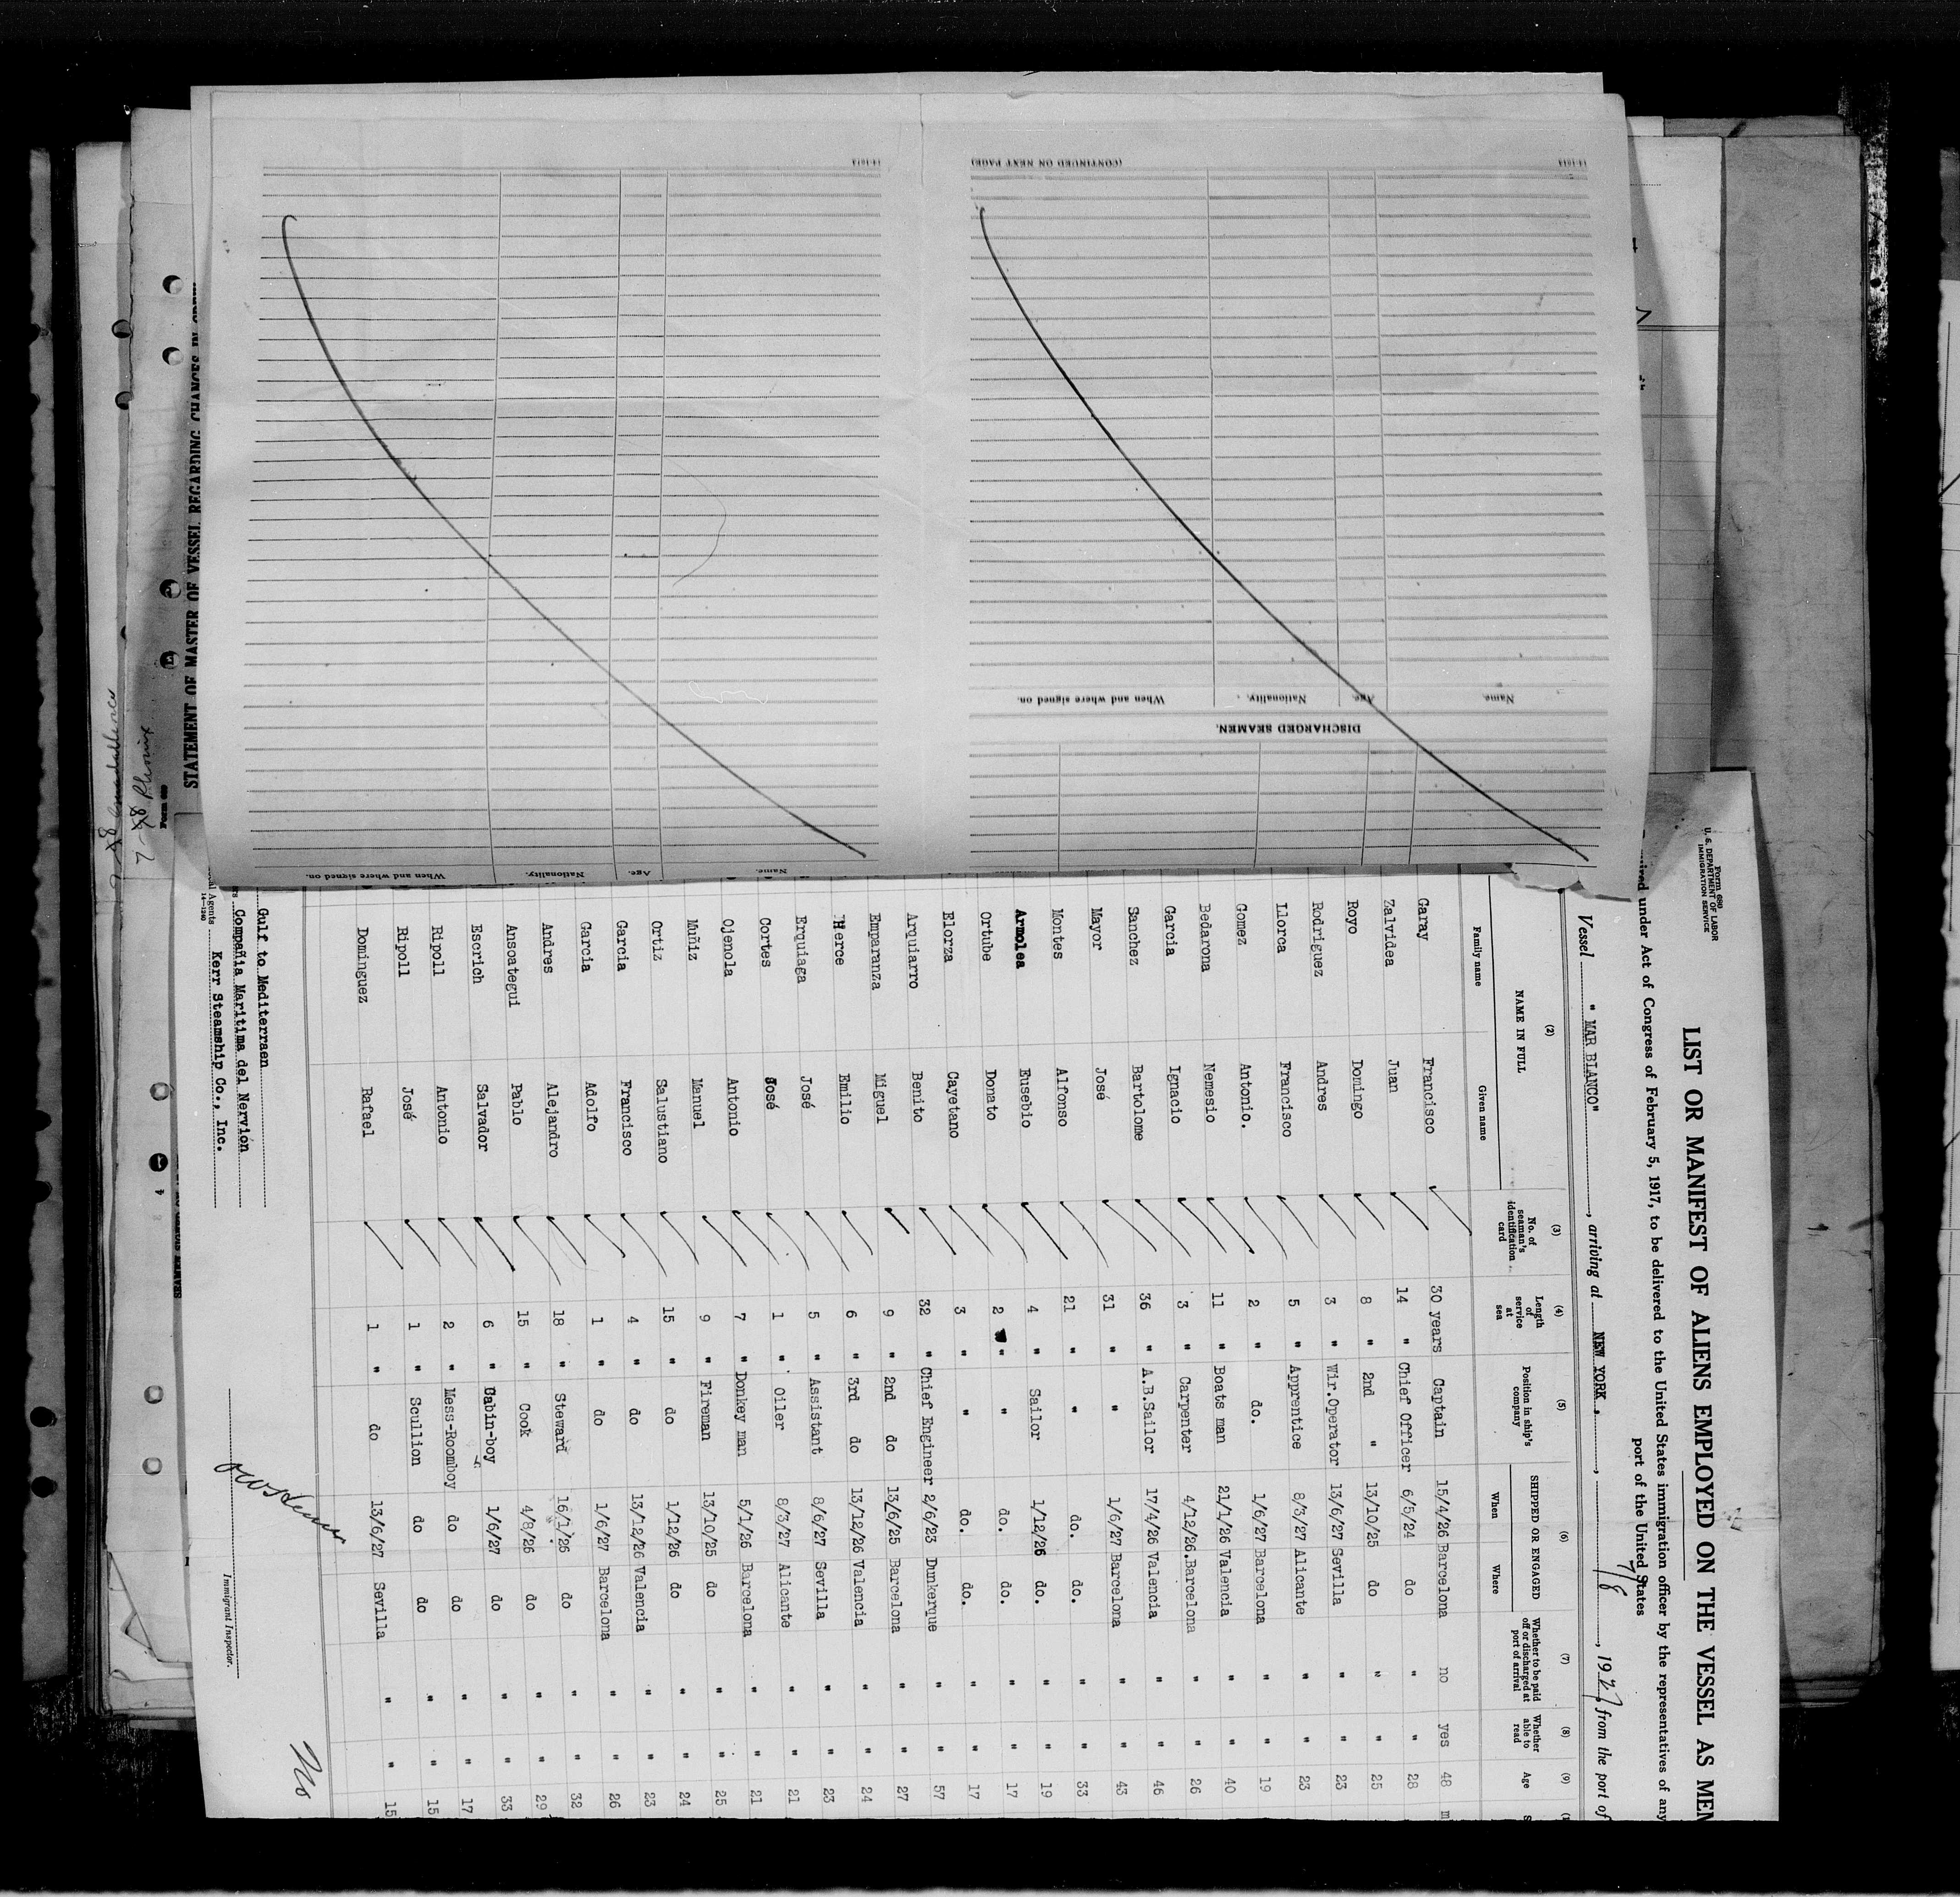 Form 680
U. S. DEPARTMENT OF LABOR
IMMIGRATION SERVICE
LIST OR MANIFEST OF ALIENS EMPLOYED ON THE VESSEL AS MEM
under Act of Congress of February 5, 1917, to be delivered to the United States immigration officer by the representatives of any
port of the United States
Vessel " MAR BLANCO", arriving at NEW YORK., 7/8, 1927, from the port of
(2) (3) (4) (5) (6) (7) (8) (9)
NAME IN FULL No. of seaman's identification card Length of service at sea Position in ship's company SHIPPED OR ENGAGED Whether to be paid off or discharged at port of arrival Whether able to read Age
Family name Given name When Where
Garay Francisco 30 years Captain 15/4/26 Barcelona no yes 48 m
Zalvidea Juan 14 " Chief Officer 6/5/24 do " " 28
Royo Domingo 8 " 2nd " 13/10/25 do " " 25
Rodriguez Andres 3 " Wir.Operator 13/6/27 Sevilla " " 23
Llorca Francisco 5 " Apprentice 8/3/27 Alicante " " 23
Gomez Antonio. 2 " do. 1/6/27 Barcelona " " 19
Bedarona Nemesio 11 " Boats man 21/1/26 Valencia " " 40
Garcia Ignacio 3 " Carpenter 4/12/26.Barcelona " " 26
Sanchez Bartolome 36 " A.B.Sailor 17/4/26 Valencia " " 46
Mayor José 31 " " 1/6/27 Barcelona " " 43
Montes Alfonso 21 " " do. do. " " 33
Armolea Eusebio 4 " Sailor 1/12/26 do. " " 19
Ortube Donato 2 " " do. do. " " 17
Elorza Cayetano 3 " " do. do. " " 17
Arquiarro Benito 32 " Chief Engineer 2/6/23 Dunkerque " " 57
Emparanza Miguel 9 " 2nd do 13/6/25 Barcelona " " 27
Herce Emilio 6 " 3rd do 13/12/26 Valencia " " 24
Erquiaga José 5 " Assistant 8/6/27 Sevilla " " 23
Cortes José 1 " Oiler 8/3/27 Alicante " " 21
Ojenola Antonio 7 " Donkey man 5/1/26 Barcelona " " 21
Muñiz Manuel 9 " Fireman 13/10/25 do " " 25
Ortiz Salustiano 15 " do 1/12/26 do " " 24
Garcia Francisco 4 " do 13/12/26 Valencia " " 23
Garcia Adolfo 1 " do 1/6/27 Barcelona " " 26
Andres Alejandro 18 " Steward 16/1/26 do " " 32
Anscategui Pablo 15 " Cook 4/8/26 do " " 29
Escrich Salvador 6 " Cabin-boy 1/6/27 do " " 33
Ripoll Antonio 2 " Mess-Roomboy do do " " 17
Ripoll José 1 " Scullion do do " " 15
Dominguez Rafael 1 " do 13/6/27 Sevilla " " 15
Gulf to Mediterraen
Compañia Maritima del Nervión
Agents Kerr Steamship Co., Inc.
14—1240
Immigrant Inspector.
(CONTINUED ON NEXT PAGE)
DISCHARGED SEAMEN.
Name. Age. Nationality. When and where signed on.
Name. Age. Nationality. When and where signed on.
STATEMENT OF MASTER OF VESSEL REGARDING CHANGES IN CREW
7-8 Phoenix